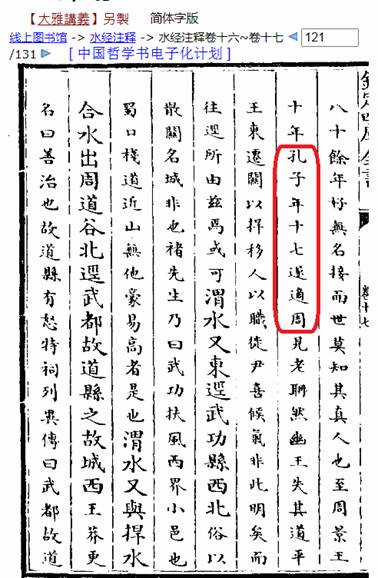 【大雅講義】另製 简体字版
线上图书馆 -> 水经注释 -> 水经注释卷十六~卷十七 121
/131 [ 中国哲学书电子化计划 ]
欽定四庫全書
卷十七
八十餘年好無名接而世莫知其真人也至周景王
十年孔子年十七遂適周見老聃然幽王失其道平
王東遷關以捍移人以職徙尹喜候氣非此明矣而
往逕所由兹焉或可渭水又東逕武功縣西北俗以
散關名城非也褚先生乃曰武功扶風西界小邑也
蜀口棧道近山無他豪易高者是也渭水又與捍水
合水出周道谷北逕武都故道縣之故城西王莽更
名曰善治也故道縣有怒特祠列異傳曰武都故道